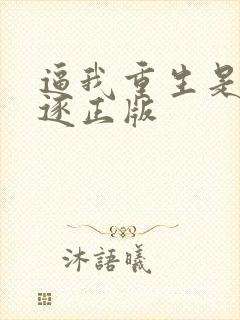 逼我重生是
逐正版
沐語曦